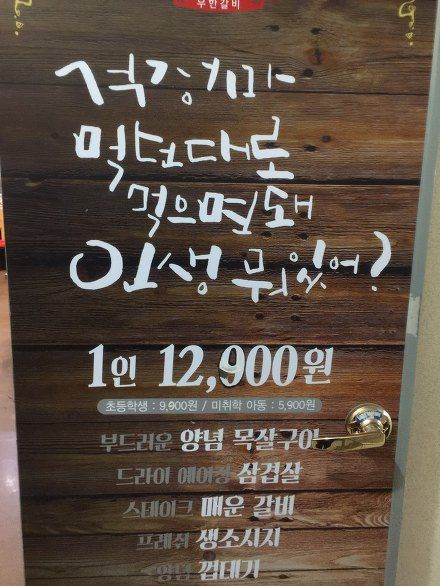 무한갈비
걱정기마
먹던대로
먹으면돼
인생 뭐있어?
1인 12,900원
초등학생 : 9,900원 / 미취학 아동 : 5,900원
부드러운 양념 목살구이
드라이 에이징 삼겹살
스테이크 매운 갈비
프레쉬 생소시지
양념 껍데기